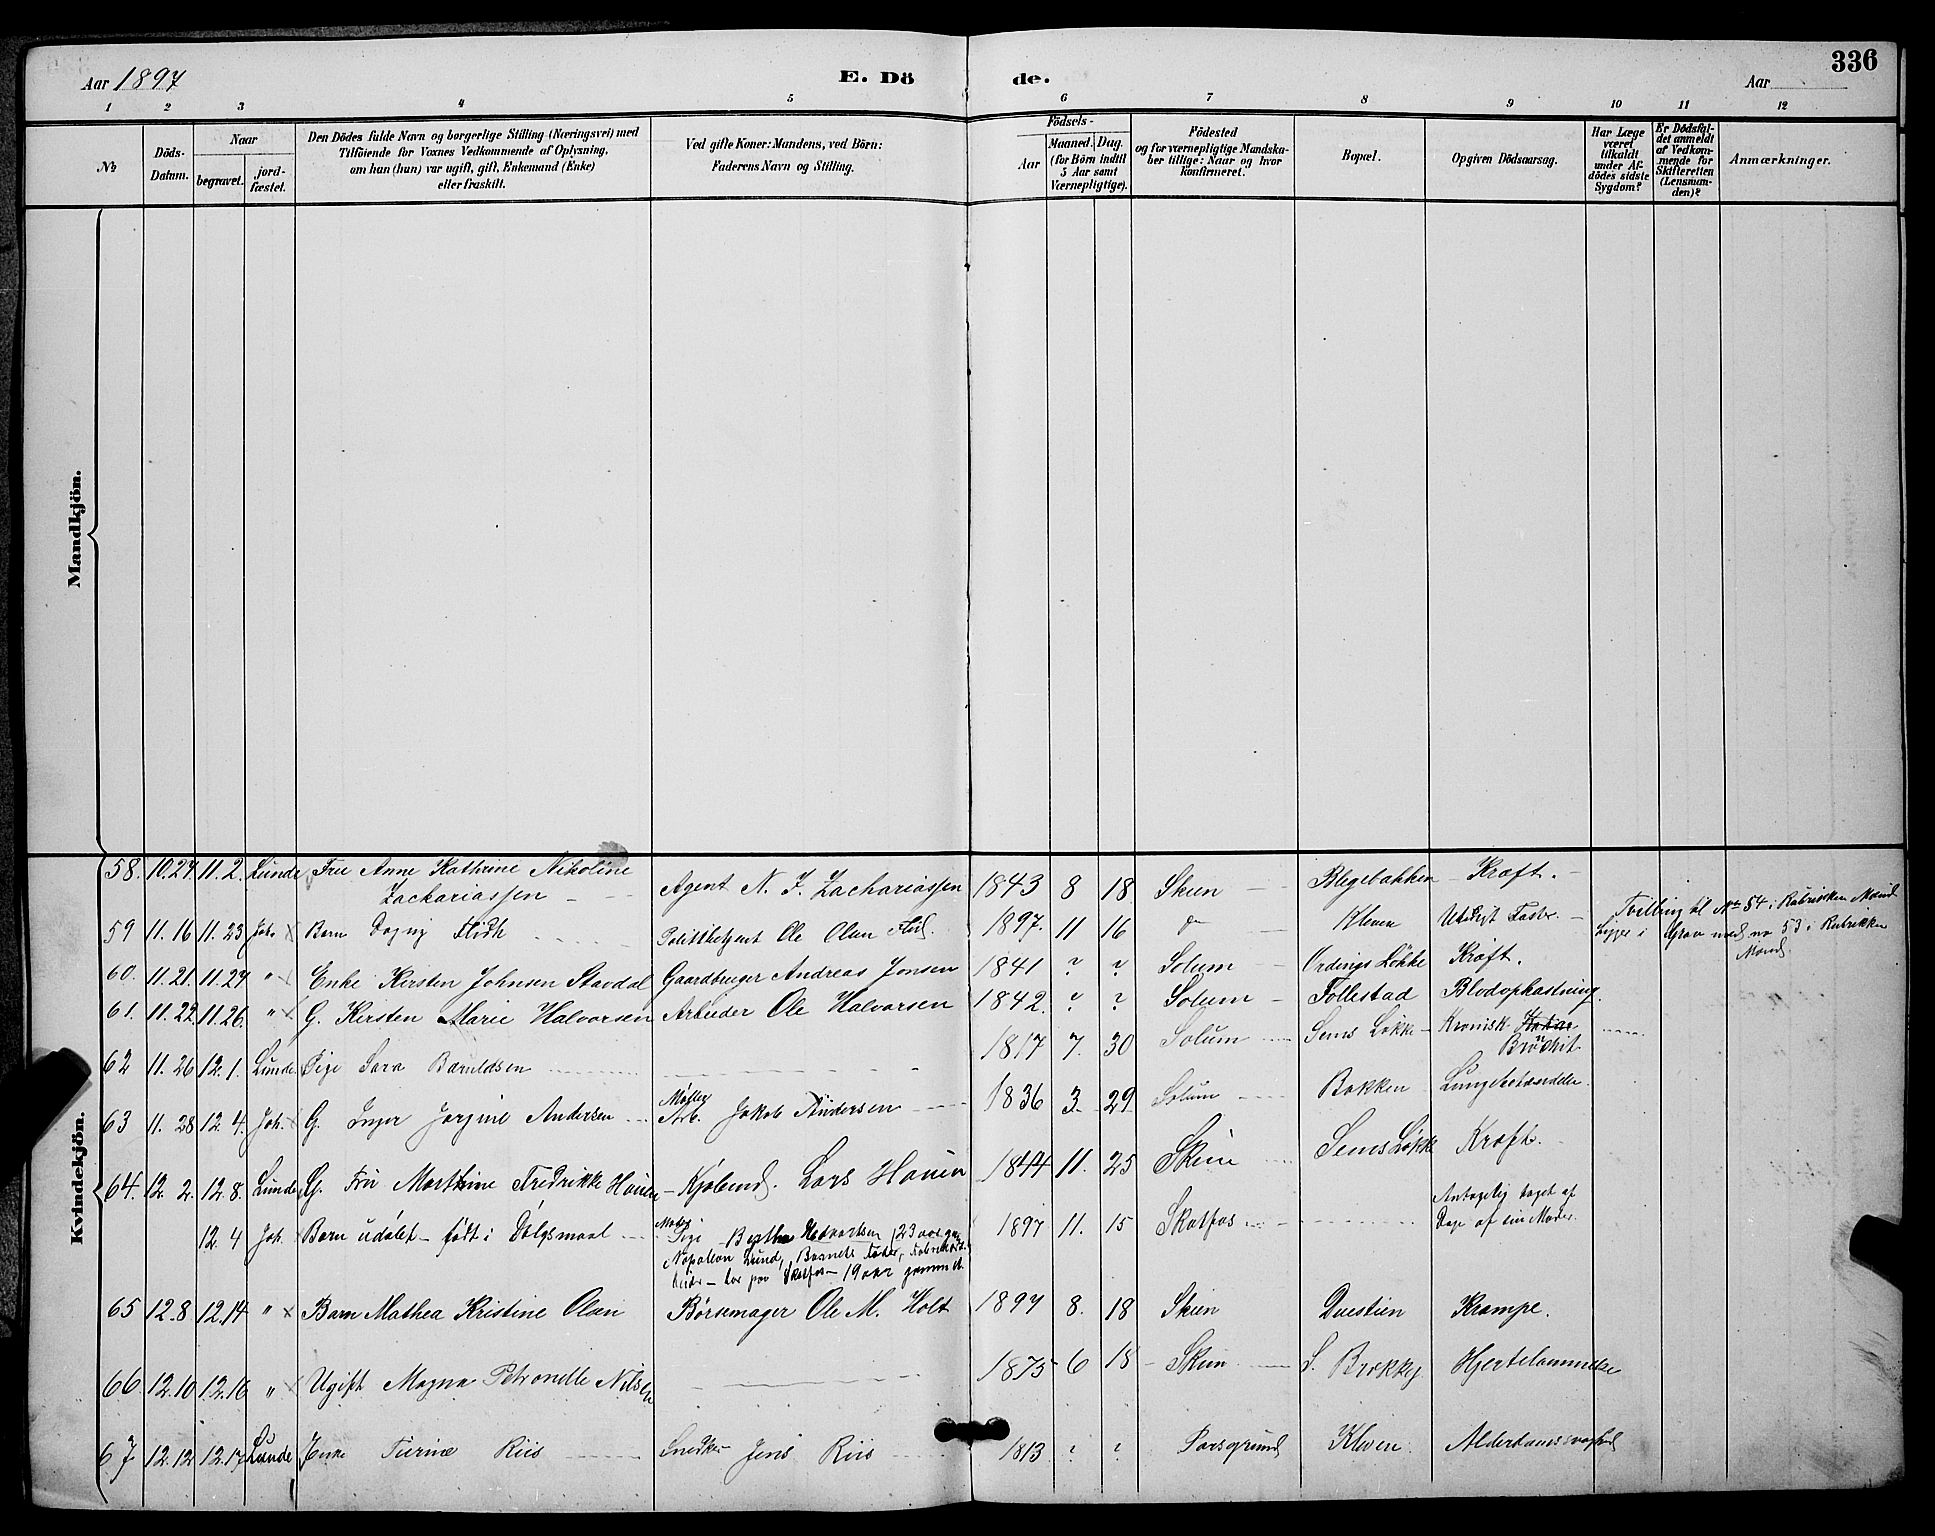 336
Aar 1897 E. Dö de. Aar
1 2 3 4 5 6 7 8 9 10 11 12
№
Döds-Datum.
Naar
begravet.
jord-fæstet.
Den Dödes fulde Navn og borgerlige Stilling (Næringsvei) med
Tilföiende for Voxnes Vedkommende af Oplysning,
om han (hun) var ugift, gift, Enkemand (Enke)
eller fraskilt.
Ved gifte Koner: Mandens, ved Börn:
Faderens Navn og Stilling.
Födsels-
Aar
Maaned. Dag.
(for Börn indtil
5 Aar samt
Værnepligtige).
Födested
og for værnepligtige Mandska-
ber tillige: Naar og hvor
konfirmeret.
Bopæl.
Opgiven Dödsaarsag.
Har Læge
været
tilkaldt
under Af-
dödes sidste
Sygdom?
Er Dödsfal-
det anmeldt
af Vedkom-
mende for
Skifteretten
(Lensman-
den)?
Anmærkninger.
Mandkjön.
Kvindekjön.
58. 10.27 11.2. Lunde Frue Anne Kathrine Nikoline
Zachariassen Agent N. J. Zachariassen 1843 8 18 Skien Blegebakken Kræft.
59 11.16 11.23 Joh. Barn Dagny Flidh Politibetjent Ole Olsen 1897. 11 16 Kleven
Tvilling til No 54 i Rubrikken Mand
Ligger i Grav med no 53 i Rubrikken
Mand
60. 11.21. 11.27 " Enke Kirsten Johnsen Stavdal Gaardbruger Andreas Jonsen 1841 ? ? Solum Ordings Løkke Kræft.
61. 11.22 11.26. " G. Kirsten Marie Halvorsen Arbeider Ole Halvorsen 1842. ? ? Solum Follestad Blodophastning.
62 11.26 12.1. Lunde Pige Sara 1817 7. 30 Solum Sems Løkke Kronisk
63 11.28 12.4. Joh. G. Inger Jorgine Andersen Arb. Jakob Andersen 1836 3. 29 Solum Bakken
64. 12.2. 12.8. Lunde G. Fru Marthine Fredrikke Hauen Kjøbmd. Lars Hauen 1844 11. 25 Skien Sems Løkke Kræft.
12.4 Joh. Barn udøbt – født i Dølgsmaal Moder Pige Berthe (23 aar
Napoleon Lund, Barnets Fader,
bor paa Skotfos – 19 aar gammel.
1897 11. 15 Skotfos Antagelig taget af
Dage af sin Moder.
65 12.8 12.14 " Barn Mathea Kristine Olsen Børsemager Ole M. Holt 1897 8. 18 Skien Duestien Krampe.
66 12.10 12.16 " Ugift Magna Petronelle Nilsen 1875 6 18 Skien Hjertelammelse
67 12.12 12.17 Lunde Enke Turine Riis Snedker Jens Riis 1813 ? ? Porsgrund Kleven Alderdomssvaghed